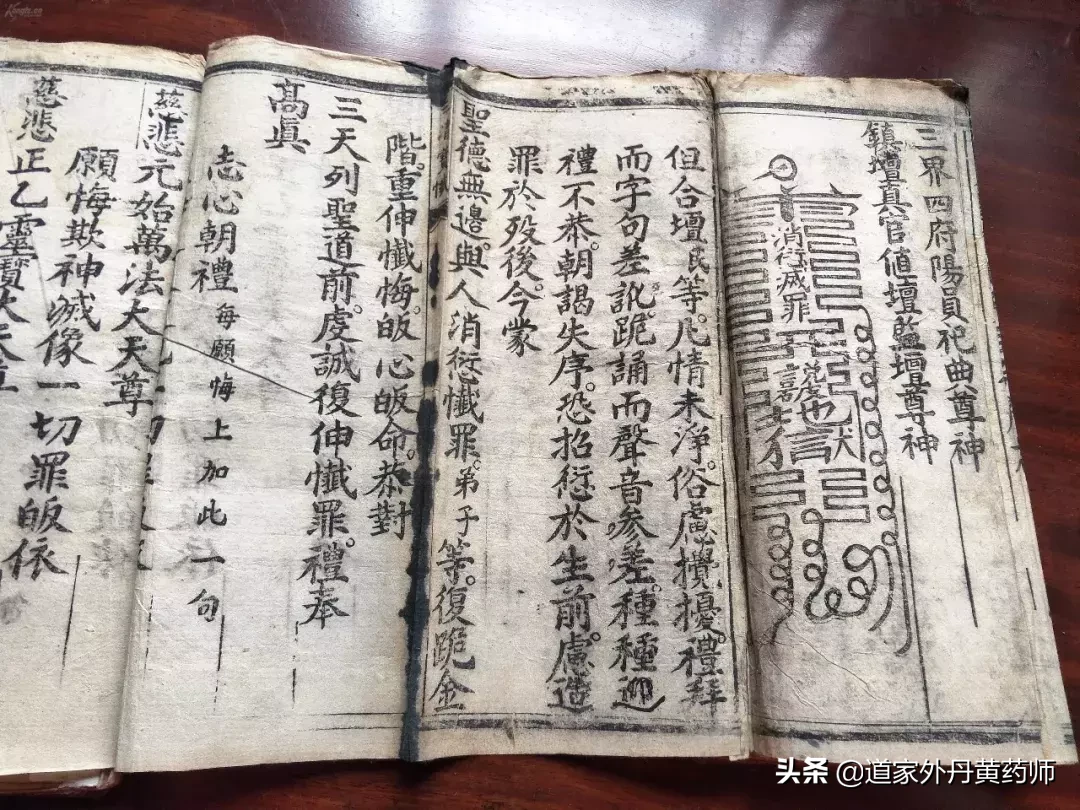 三界四府陽員祀典尊神
鎮壇真官值壇監壇尊神
消愆滅罪
但合壇民等。凡情未淨。俗慮攪擾。禮拜
而字句差訛。跪誦而聲音参差。種種
禮不恭。朝謁失序。恐招愆於生前。慮造
罪於歿後。今蒙
聖德無邊。與人消愆懺罪。弟子等。復跪金
階。重伸懺悔。皈心皈命。恭對
三天列聖道前。虔誠復伸懺罪。禮奉
高眞
志心朝禮 每願悔上加此一句
慈悲元始萬法大天尊
願悔欺神滅像一切罪皈依
慈悲正乙靈寶大天尊
Kongfz.cn
头条 @道家外丹黄药师